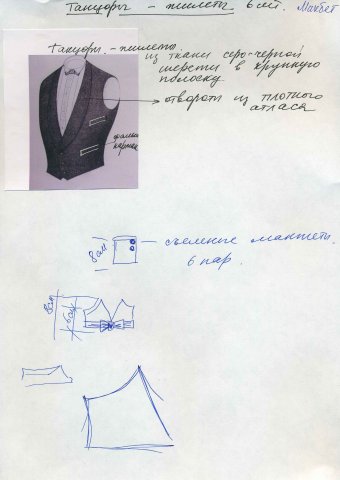 Танцоры - жилеты 6 шт. Макбет
Танцоры - жилеты
из ткани серо-черной
шерсти в крупную
полоску
отвороты из плотного
атласа
карман
8 см
съемные манжеты
6 пар.
8см
6 см